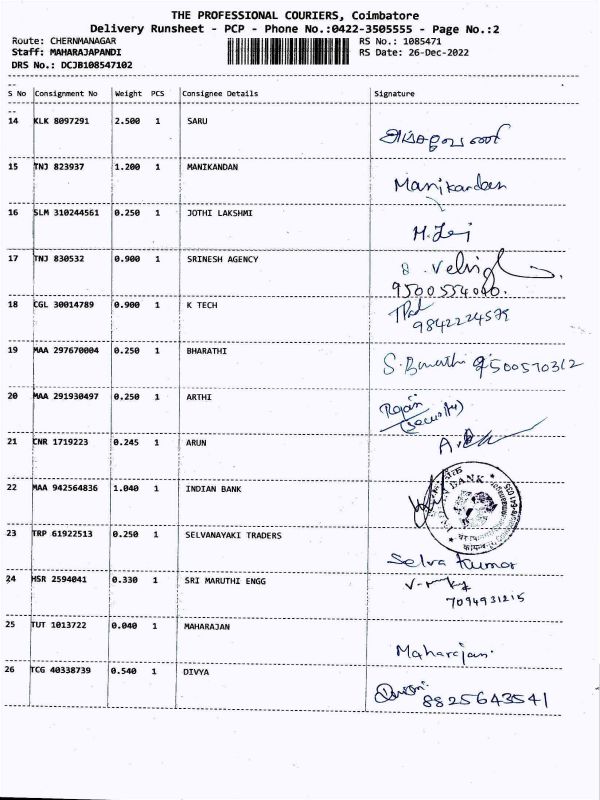 THE PROFESSIONAL COURIERS, Coimbatore
Delivery Runsheet - PCP - Phone No.:0422-3505555 - Page No.:2
Route: CHERNMANAGAR RS No.: 1085471
Staff: MAHARAJAPANDI RS Date: 26-Dec-2022
DRS No.: DCJB108547102
S No Consignment No Weight PCS Consignee Details Signature
14 KLK 8097291 2.500 1 SARU
15 TNJ 823937 1.200 1 MANIKANDAN Manikandan
16 SLM 310244561 0.250 1 JOTHI LAKSHMI
17 TNJ 830532 0.900 1 SRINESH AGENCY
9500554040.
18 CGL 30014789 0.900 1 K TECH
9842224579
19 MAA 297670004 0.250 1 BHARATHI S. Barathi 9500570312
20 MAA 291930497 0.250 1 ARTHI Rajan
(security)
21 CNR 1719223 0.245 1 ARUN
22 MAA 942564836 1.040 1 INDIAN BANK
23 TRP 61922513 0.250 1 SELVANAYAKI TRADERS
Selva Kumar
24 HSR 2594041 0.330 1 SRI MARUTHI ENGG
7094931215
25 TUT 1013722 0.040 1 MAHARAJAN Maharajan.
26 TCG 40338739 0.540 1 DIVYA
8825643541